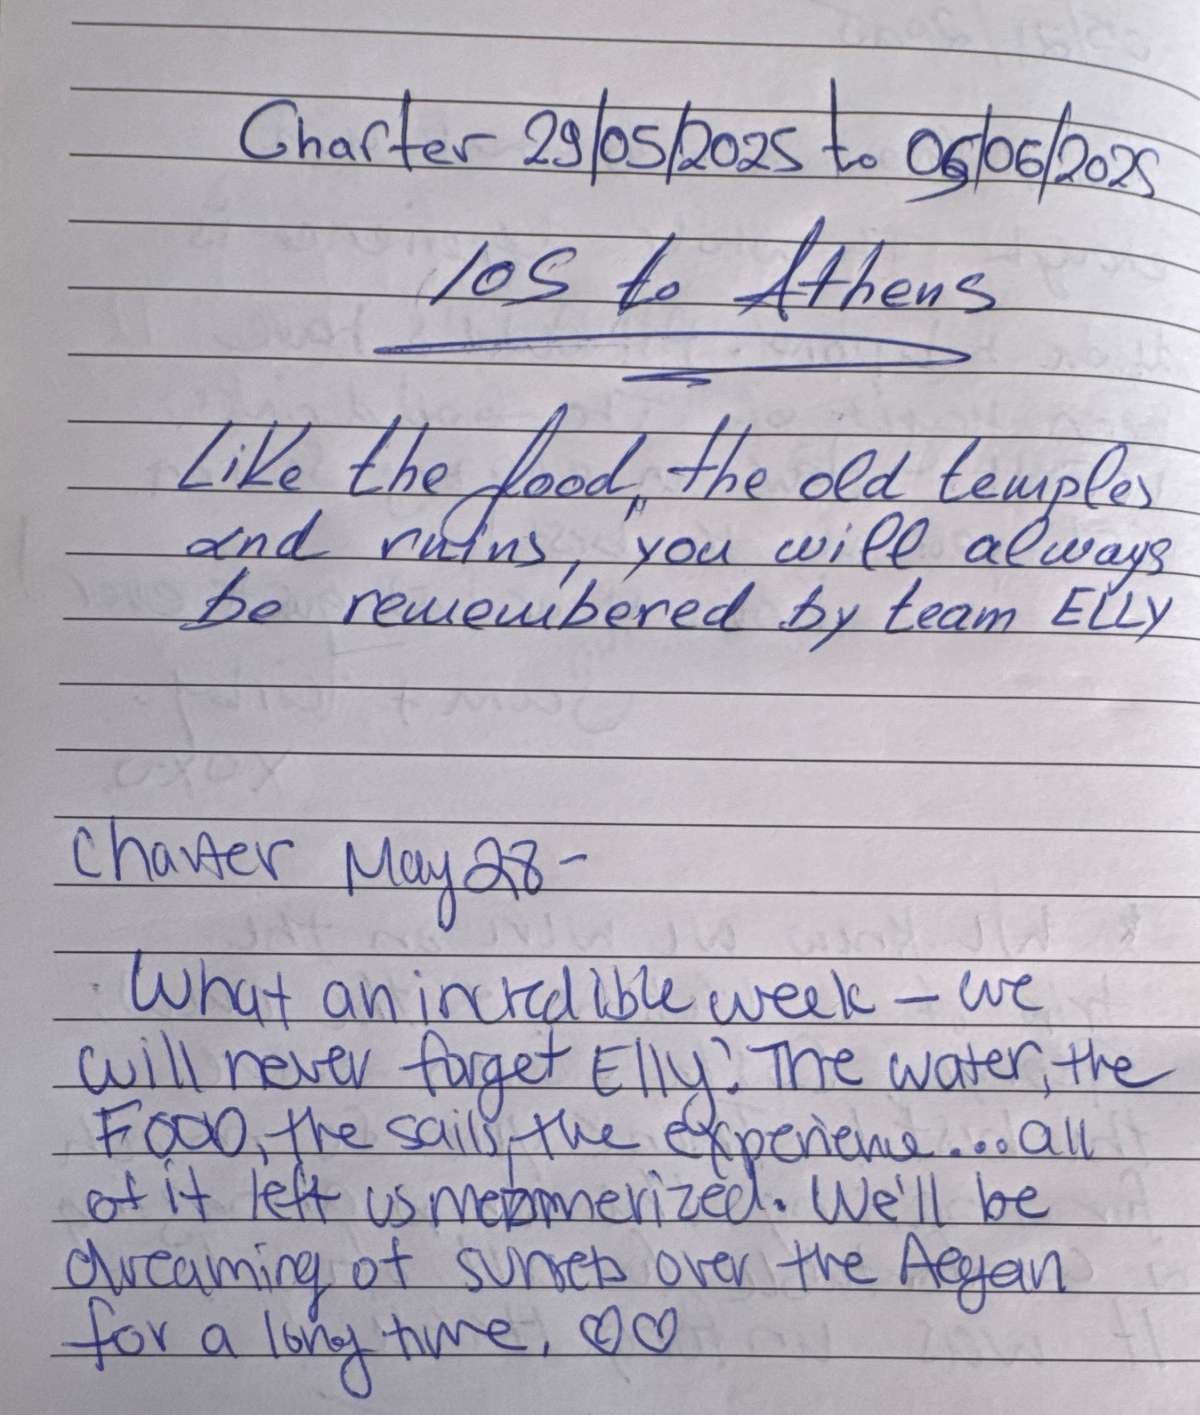 Charter 29/05/2025 to 06/06/2025
IOS to Athens
Like the food, the old temples
and ruins, you will always
be remembered by team ELLY
Charter May 28 -
What an incredible week - we
will never forget Elly! The water, the
Food, the sails, the experience... all
of it left us mesmerized. We'll be
dreaming of sunsets over the Aegan
for a long time. ♡♡